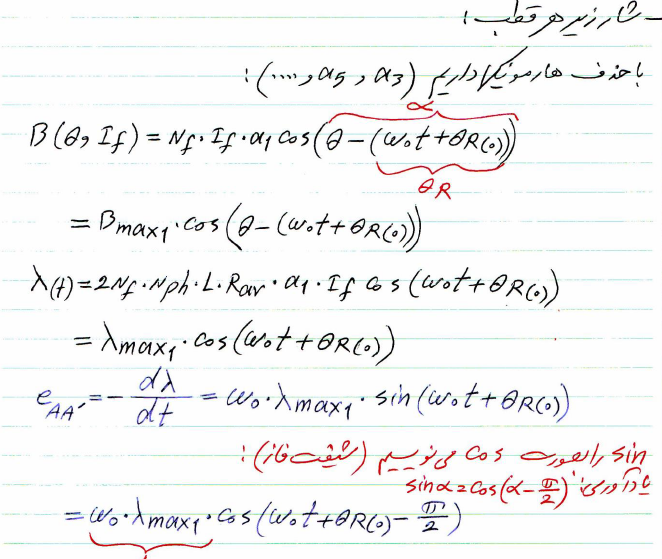 - شار زیر هر قطب:
با حذف هارمونیکها داریم (a3 و a5 و ....):
α
B(θ, If) = Nf · If · a1 cos(θ - (ω0t + θR(0)))
θR
= Bmax1 · cos(θ - (ω0t + θR(0)))
λ(t) = 2Nf · Nph · L · Rav · a1 · If cos(ω0t + θR(0))
= λmax1 · cos(ω0t + θR(0))
eAA' = - dλ/dt = ω0 · λmax1 · sin(ω0t + θR(0))
sin را بصورت cos می نویسیم (شیفت فاز):
یادآوری: sinα = cos(α - π/2)
= ω0 · λmax1 · cos(ω0t + θR(0) - π/2)